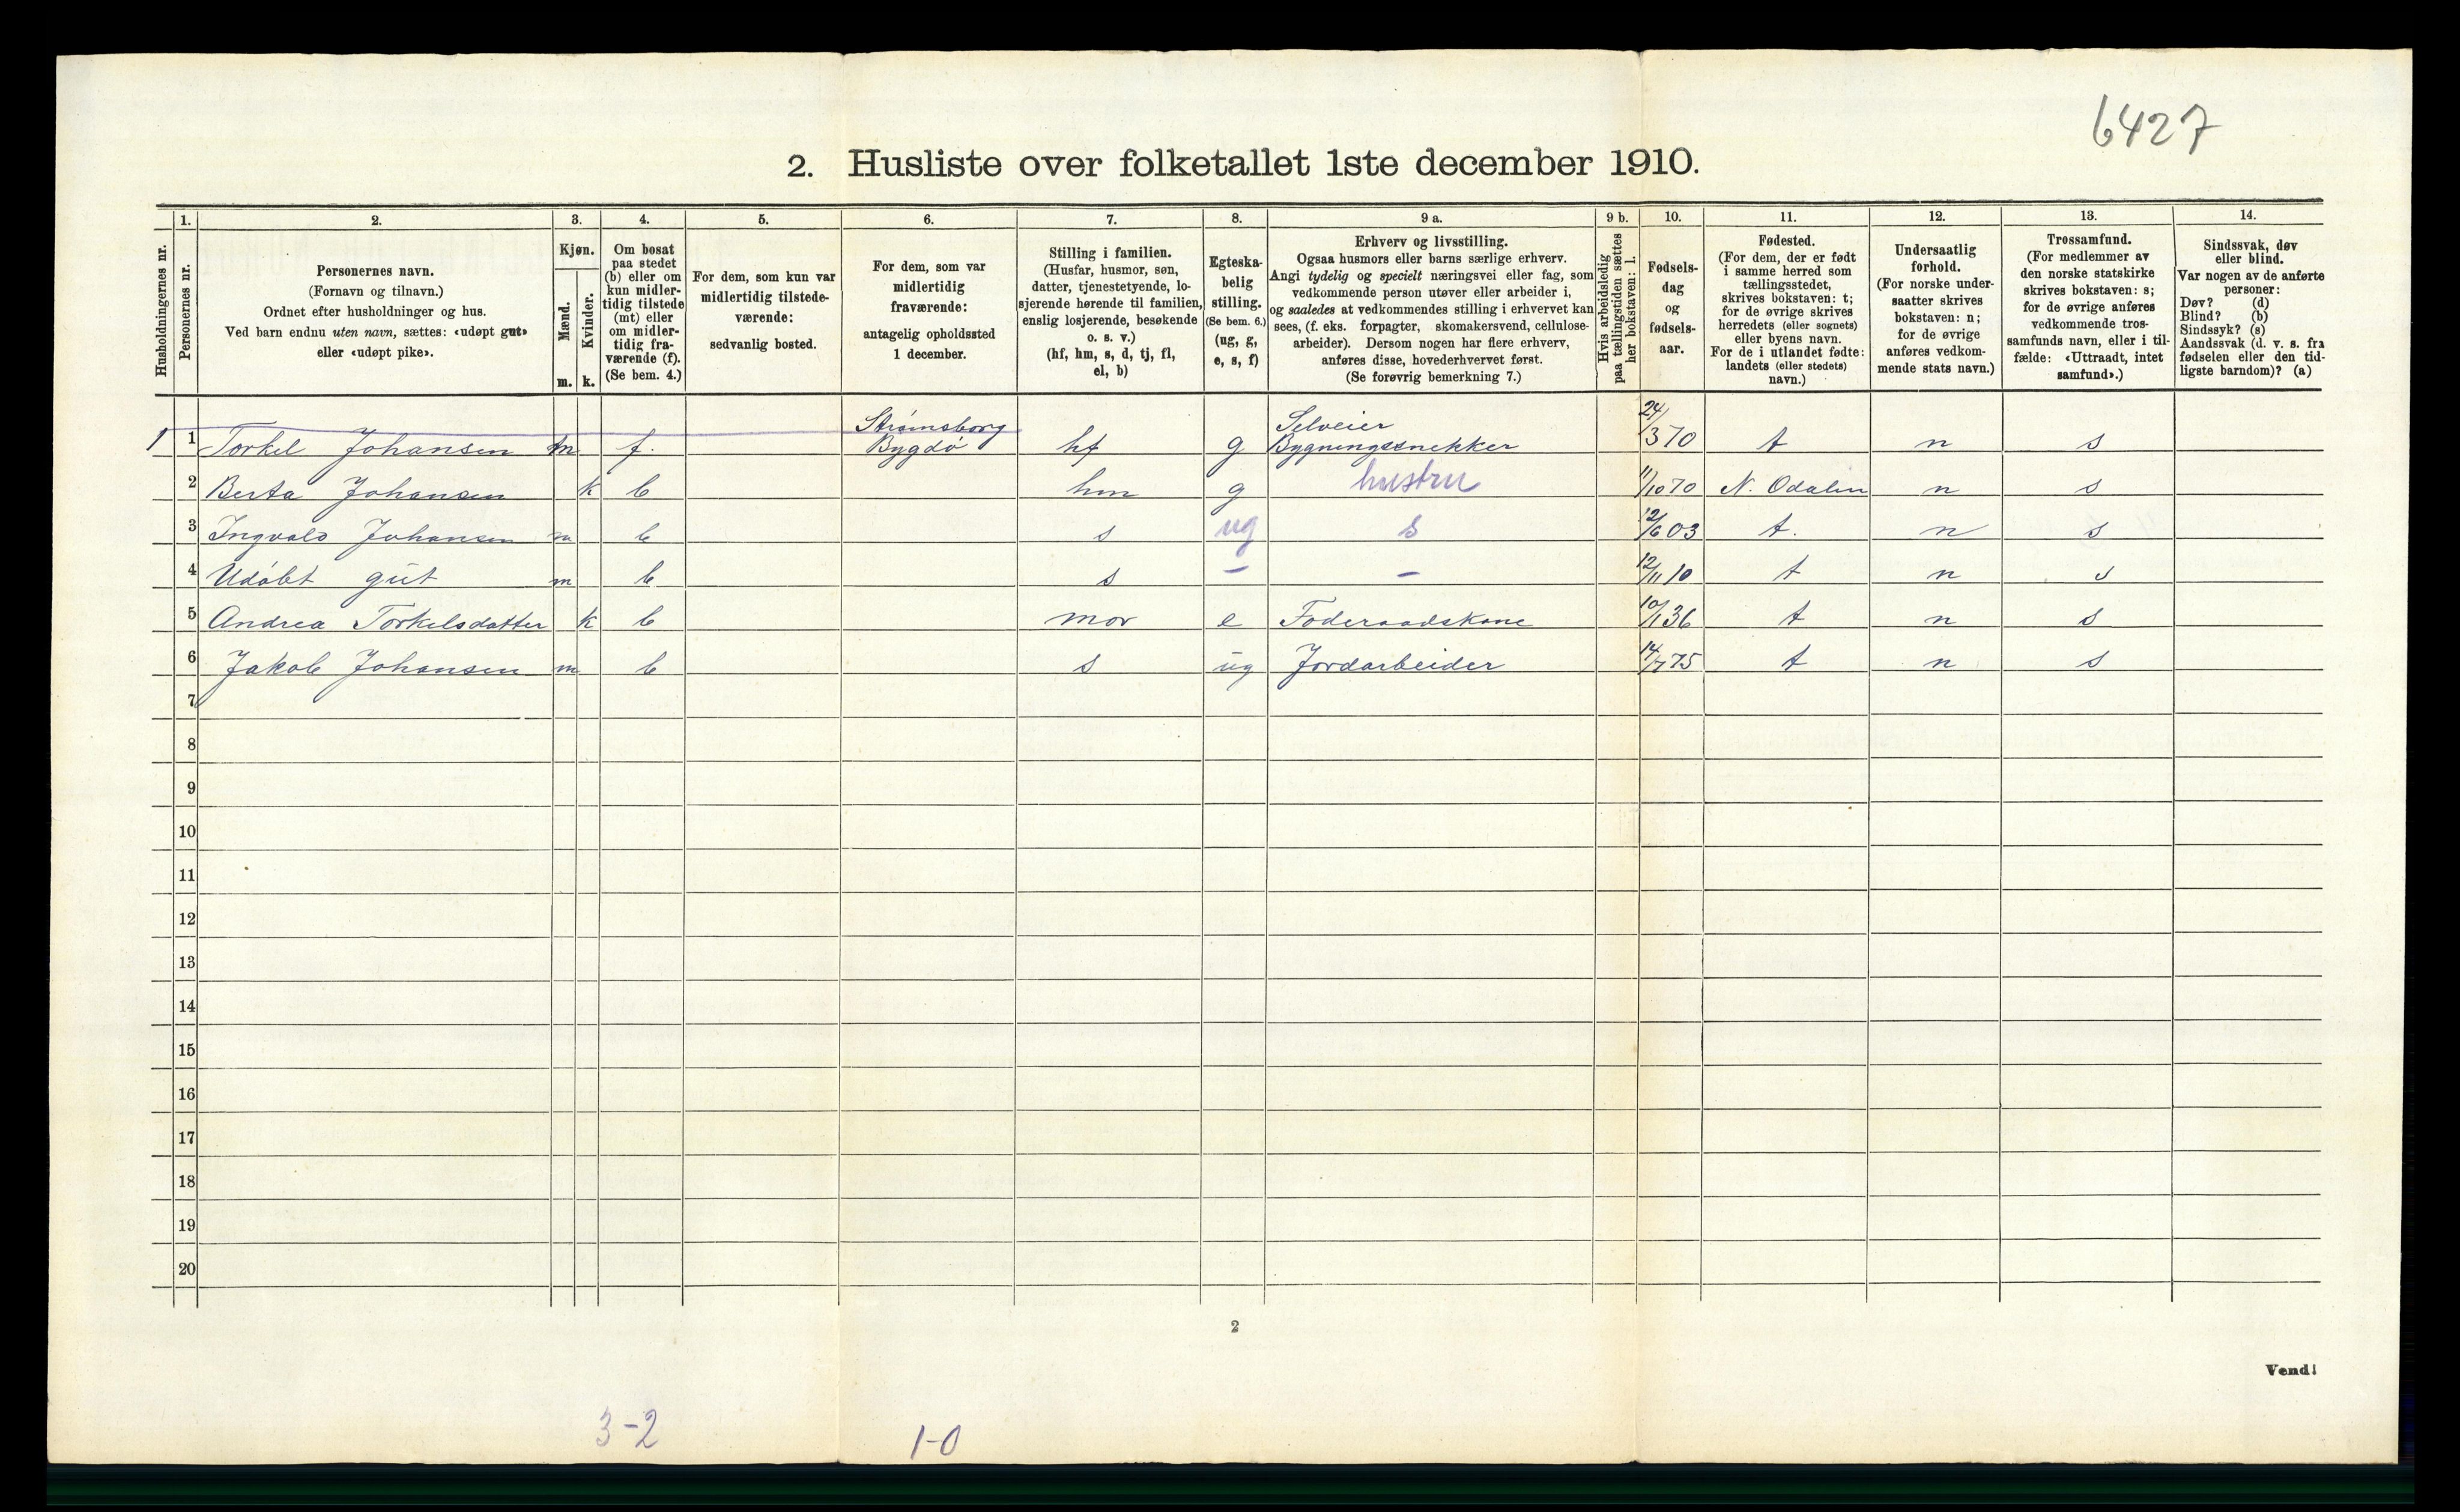 6427
2. Husliste over folketallet 1ste december 1910.
1. 2. 3. 4. 5. 6. 7. 8. 9 a. 9 b. 10. 11. 12. 13. 14.
Husholdningernes nr.
Personernes nr.
Personernes navn.
(Fornavn og tilnavn.)
Ordnet efter husholdninger og hus.
Ved barn endnu uten navn, sættes: «udøpt gut»
eller «udøpt pike».
Kjøn.
Mænd.
Kvinder.
m. k.
Om bosat
paa stedet
(b) eller om
kun midler-
tidig tilstede
(mt) eller
om midler-
tidig fra-
værende (f).
(Se bem. 4.)
For dem, som kun var
midlertidig tilstede-
værende:
sedvanlig bosted.
For dem, som var
midlertidig
fraværende:
antagelig opholdssted
1 december.
Stilling i familien.
(Husfar, husmor, søn,
datter, tjenestetyende, lo-
sjerende hørende til familien,
enslig losjerende, besøkende
o. s. v.)
(hf, hm, s, d, tj, fl,
el, b)
Egteska-
belig
stilling.
(Se bem. 6.)
(ug, g,
e, s, f)
Erhverv og livsstilling.
Ogsaa husmors eller barns særlige erhverv.
Angi tydelig og specielt næringsvei eller fag, som
vedkommende person utøver eller arbeider i,
og saaledes at vedkommendes stilling i erhvervet kan
sees, (f. eks. forpagter, skomakersvend, cellulose-
arbeider). Dersom nogen har flere erhverv,
anføres disse, hovederhvervet først.
(Se forøvrig bemerkning 7.)
Hvis arbeidsledig
paa tællingstiden sættes
her bokstaven: l.
Fødsels-
dag
og
fødsels-
aar.
Fødested.
(For dem, der er født
i samme herred som
tællingsstedet,
skrives bokstaven: t;
for de øvrige skrives
herredets (eller sognets)
eller byens navn.
For de i utlandet fødte:
landets (eller stedets)
navn.)
Undersaatlig
forhold.
(For norske under-
saatter skrives
bokstaven: n;
for de øvrige
anføres vedkom-
mende stats navn.)
Trossamfund.
(For medlemmer av
den norske statskirke
skrives bokstaven: s;
for de øvrige anføres
vedkommende tros-
samfunds navn, eller i til-
fælde: «Uttraadt, intet
samfund».)
Sindssvak, døv
eller blind.
Var nogen av de anførte
personer:
Døv? (d)
Blind? (b)
Sindssyk? (s)
Aandssvak (d. v. s. fra
fødselen eller den tid-
ligste barndom)? (a)
Strömsborg Selveier
1 1 Torkel Johansen m f. Bygdö hf g Bygningssnekker 24/3 70 t n s
2 Berta Johansen k b hm g hustru 11/10 70 N. Odalen n s
3 Ingvald Johansen m b s ug s 12/6 03 t. n s
4 Udöbt gut m b s – – 12/11 10 t n s
5 Andrea Torkelsdatter k b mor e Föderaadskone 10/1 36 t n s
6 Jakob Johansen m b s ug Jordarbeider 14/7 75 t n s
7
8
9
10
11
12
13
14
15
16
17
18
19
20
2
Vend!
3-2 1-0